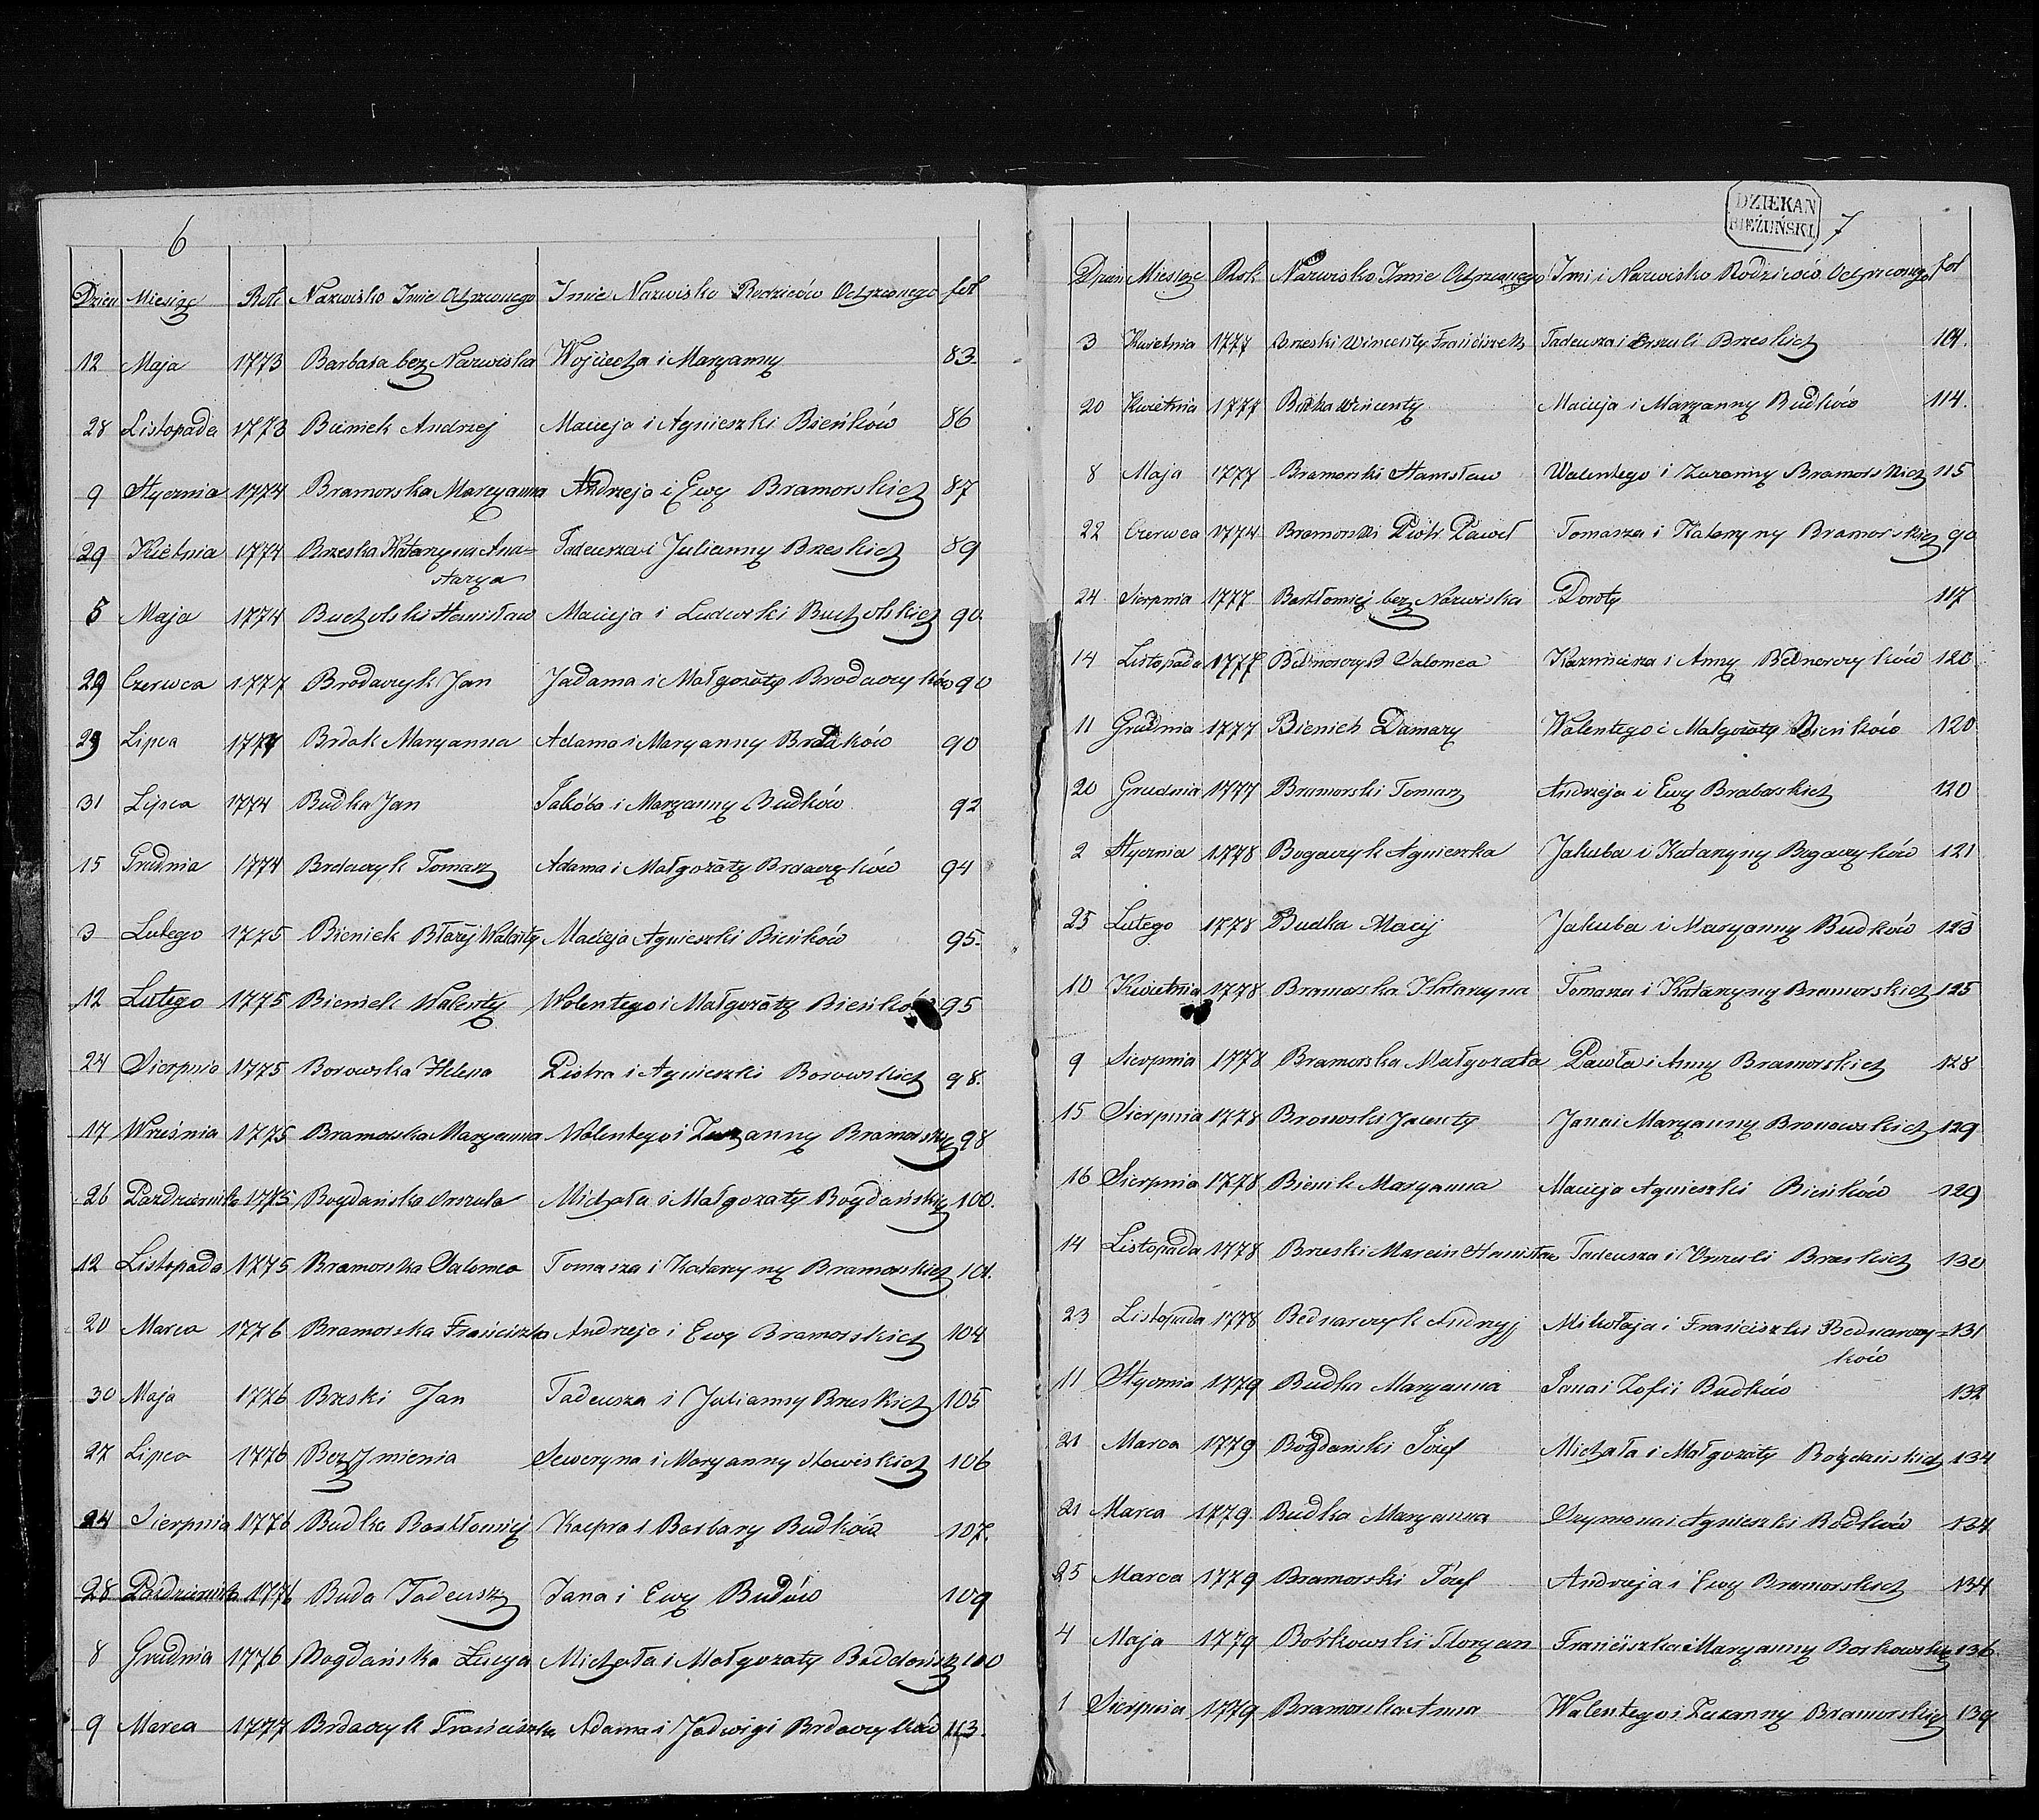 6
Dzień Miesiąc Rok Nazwisko Imie Ochrzconego Imie Nazwisko Rodziców Ochrzconego fol
12 Maja 1773 Barbara bez Nazwiska Wojciecha i Maryanny 83.
28 Listopada 1773 Bieniek Andrzej Macieja i Agnieszki Bieńków 86
9 Stycznia 1774 Bramorska Maryanna Andrzeja i Ewy Bramorskich 87
29 Kietnia 1774 Brzeska Katarzyna Ana= Tadeusza i Julianny Brzeskich 89
starya
5 Maja 1774 Bucholski Stanisław Macieja i Ludwiki Bucholskich 90.
29 Czerwca 1777 Brodaczyk Jan Jadama i Małgorzaty Brodaczyków 90
29 Lipca 1774 Brdak Maryanna Adama i Maryanny Brdaków 90
31 Lipca 1774 Budka Jan Jakóba i Maryanny Budków 92
15 Grudnia 1774 Brdaczyk Tomasz Adama i Małgorzaty Brdaczyków 94
3 Lutego 1775 Bieniek Błażéj Walenty Macieja Agnieszki Bieńków 95.
12 Lutego 1775 Bieniek Walenty Walentego i Małgorzaty Bieńków 95
24 Sierpnia 1775 Borowska Helena Piotra i Agnieszki Borowskich 98.
17 Września 1775 Bramorska Maryanna Walentego i Zuzanny Bramorskich 98
26 Pazdziernika 1775 Bogdańska Urszula Michała i Małgorzaty Bogdańskich 100.
12 Listopada 1775 Bramorska Salomea Tomasza i Katarzyny Bramorskich 101.
20 Marca 1776 Bramorska Franciszka Andrzeja i Ewy Bramorskich 104
30 Maja 1776 Brzski Jan Tadeusza i Julianny Brzeskich 105
27 Lipca 1776 Bez Jmienia Seweryna i Maryanny 106
24 Sierpnia 1776 Budka Bartłomiéj Kacpra i Barbary Budków 107.
28 Pazdziernika 1776 Buda Tadeusz Jana i Ewy Budów 109
8 Grudnia 1776 Bogdańska Łucya Michała i Małgorzaty 110
9 Marca 1777 Brdaczyk Franciszka Adama i Jadwigi Brdaczyków 113.
DZIEKAN
BIEŻUŃSKI.
7
Dzień Miesiąc Rok Nazwisko Imie Ochrzconego Imi i Nazwisko Rodziców Ochrzconego fol
3 Kwietnia 1777 Brzeski Wincenty Franciszek Tadeusza i Urszuli Brzeskich 114.
20 Kwietnia 1777 Budka Wincenty Macieja i Maryanny Budków 114.
8 Maja 1777 Bramorski Stanisław Walentego i Zuzanny Bramorskich 115
22 Czerwca 1774 Bramorski Piotr Paweł Tomasza i Katarzyny Bramorskich 90
24 Sierpnia 1777 Bartłomiéj bez Nazwiska Doroty 117
14 Listopada 1777 Bednarczyk Salomea Kazimierza i Anny Bednarczyków 120
11 Grudnia 1777 Bieniek Damazy Walentego i Małgorzaty Bieńków 120
20 Grudnia 1777 Bramorski Tomasz Andrzeja i Ewy Brabarskich 120
2 Stycznia 1778 Bogaczyk Agnieszka Jakuba i Katarzyny Bogaczyków 121
25 Lutego 1778 Budka Maciéj Jakuba i Maryanny Budków 123
10 Kwietnia 1778 Bramorska Katarzyna Tomasza i Katarzyny Bramorskich 125
9 Sierpnia 1778 Bramorska Małgorzata Pawła i Anny Bramorskich 128
15 Sierpnia 1778 Bronoski Jacenty Jana i Maryanny Bronowskich 129
16 Sierpnia 1778 Bienik Maryanna Macieja Agnieszki Bieńków 129
14 Listopada 1778 Brzeski Marcin Stanisław Tadeusza i Urszuli Brzeskich 130
23 Listopada 1778 Bednarczyk Andrzéj Mikołaja i Franciszki Bednarczy= 131
ków
11 Stycznia 1779 Budka Maryanna Jana i Zofii Budków 132
21 Marca 1779 Bogdanski Józef Michała i Małgorzaty Bogdańskich 134
21 Marca 1779 Budka Maryanna Szymona i Agnieszki Budków 134
25 Marca 1779 Bramorski Józef Andrzeja i Ewy Bramorskich 134
4 Maja 1779 Borkowski Floryan Franciszka i Maryanny Borkowskich 136.
1 Sierpnia 1779 Bramorska Anna Walentego i Zuzanny Bramorskich 139